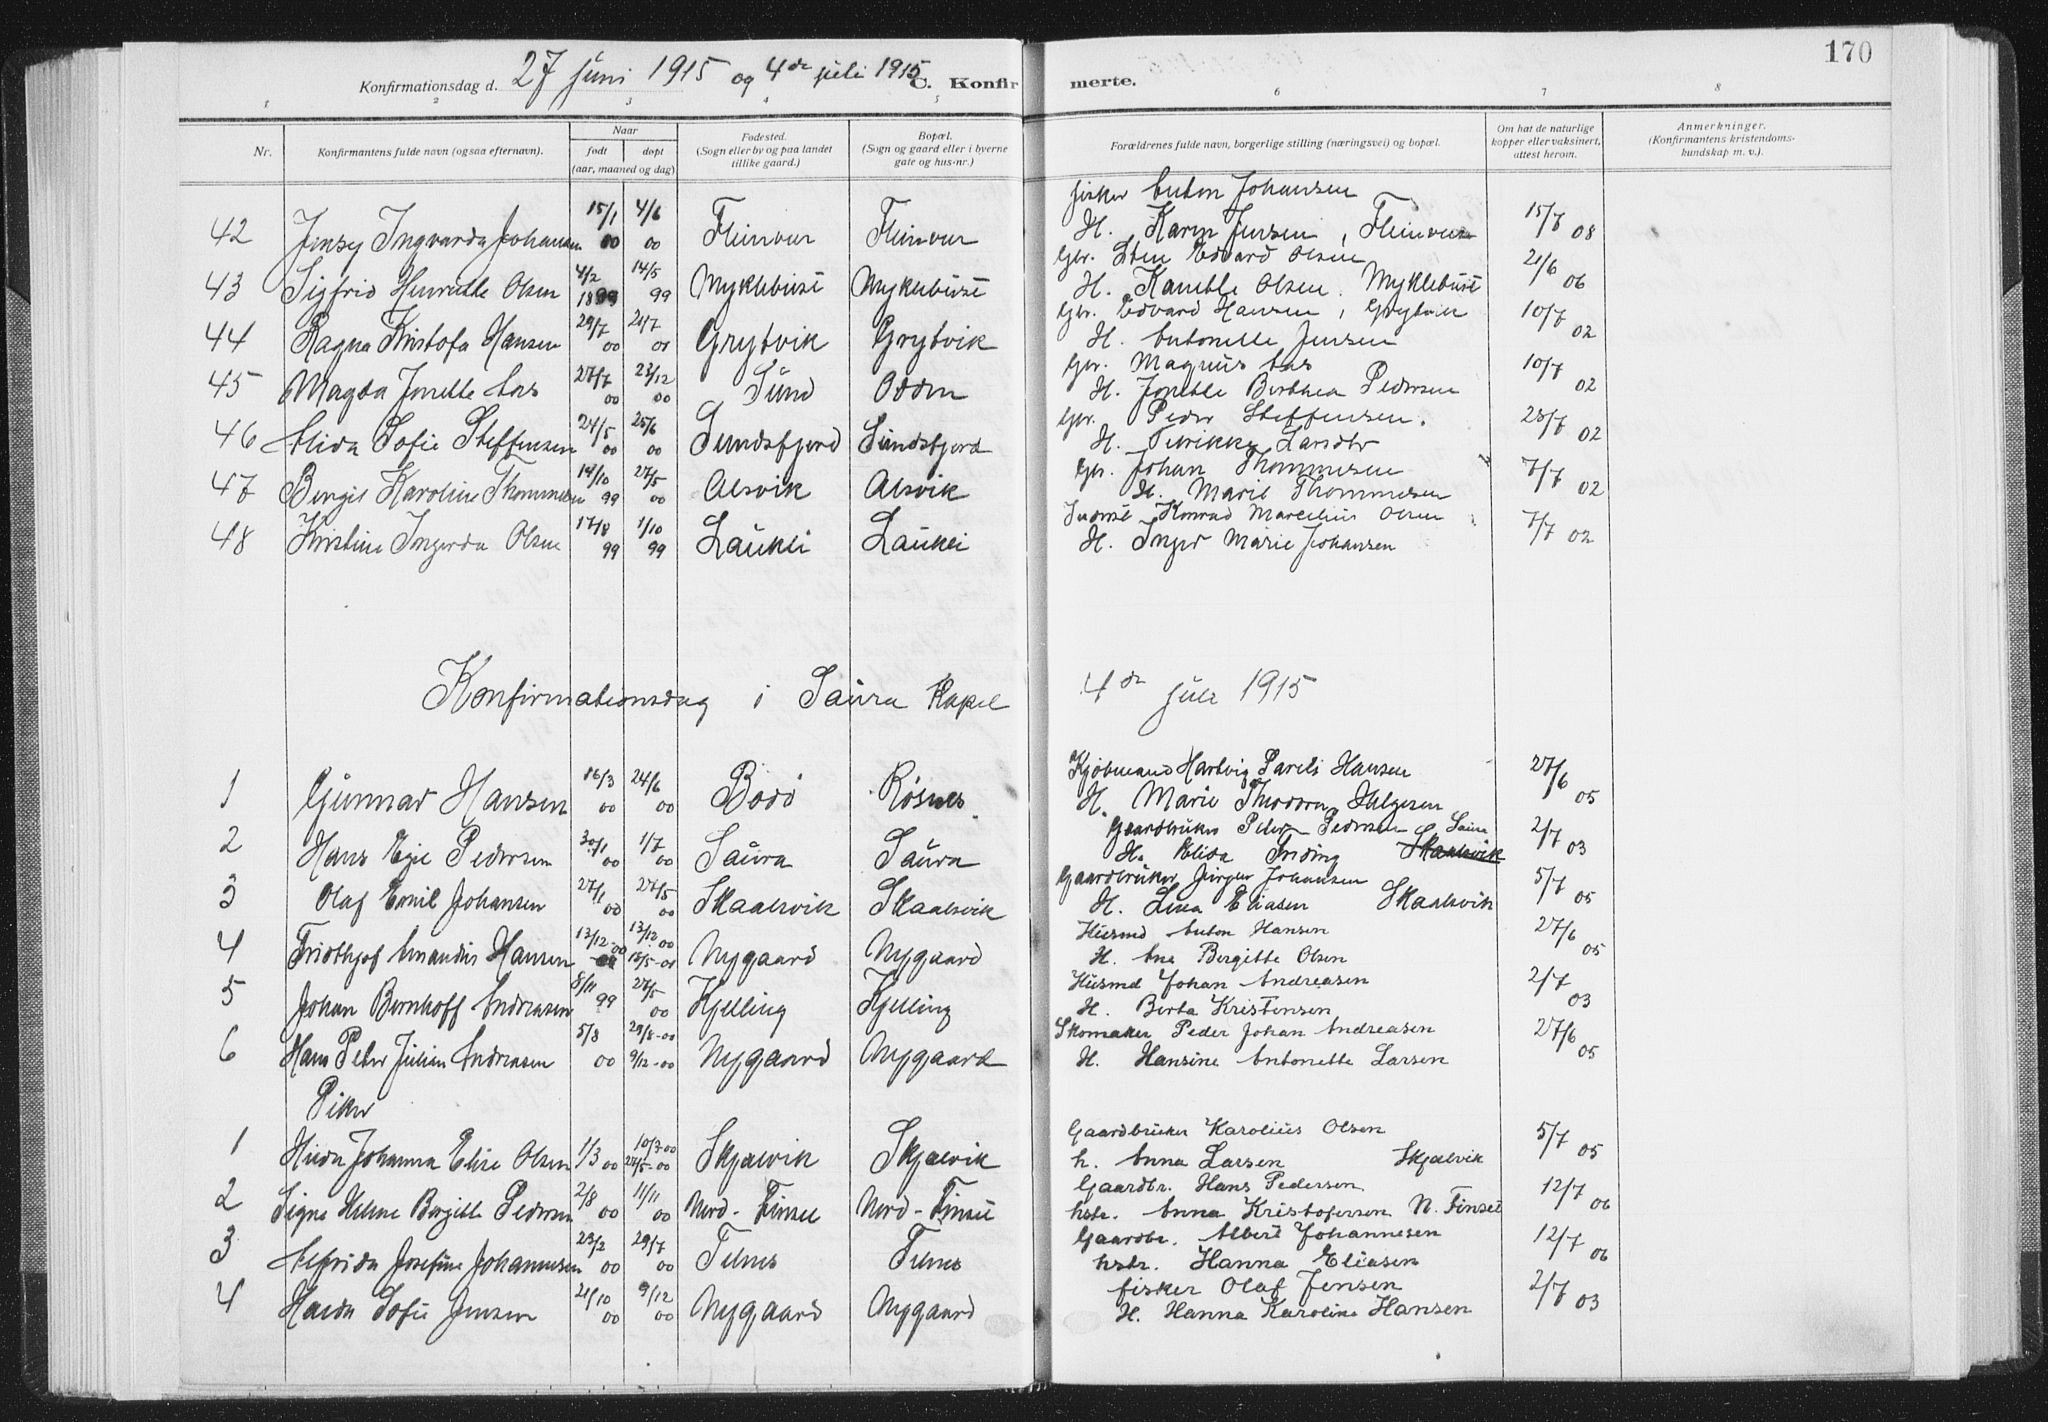 170
Konfirmationsdag d. 27 juni 1915 og 4de juli 1915 C. Konfirmerte.
1 2 3 4 5 6 7 8
Nr. Konfirmantens fulde navn (ogsaa efternavn). Naar født døpt (aar, maaned og dag) Fødested. (Sogn eller by og paa landet tillike gaard.) Bopæl. (Sogn og gaard eller i byerne gate og hus-nr.) Forældrenes fulde navn, borgerlige stilling (næringsvei) og bopæl. Om hat de naturlige kopper eller vaksinert, attest herom. Anmerkninger. (Konfirmantens kristendomskundskap m. v.).
fisker Anton Johansen
42 Jensy Ingvarda Johansen 15/1 00 4/6 00 Fleinvær Fleinvær H. Karen Jensen, Fleinvær 15/7 08
Gbr. Sten Edvard Olsen
43 Sigfrid Henriette Olsen 4/2 1899 14/5 99 Myklebust Myklebust H. Kamble Olsen. Myklebust 21/6 06
Gbr. Edvard Hansen, Grytvik
44 Ragna Kristofa Hansen 29/7 00 21/7 01 Grytvik Grytvik H. Antonette Jensen 10/7 02
Gbr. Magnus Aas
45 Magda Jonette Aas 27/7 00 23/12 00 Sund Odden H. Jonette Berthea Pedersen 10/7 02
Gbr. Peder Steffensen.
46 Alida Sofie Steffensen 24/5 00 25/6 00 Sundsfjord Sundsfjord H. 23/7 02
Gbr. Johan Thommesen
47 Bergit Karoline Thommesen 14/10 99 27/5 00 Alsvik Alsvik H. Marie Thommesen 7/7 02
Inderst Konrad Marcelius Olsen
48 Kristine Ingerda Olsen 17/8 99 1/10 99 Laukli Laukli H. Inger Marie Johansen 7/7 02
Konfirmationsdag i Saura Kapel 4de juli 1915
Kjøbmand Hartvig Pareli Hansen
1 Gunnar Hansen 16/3 00 24/6 00 Bodø Røsnes H. Marie Theodora Helgesen 27/6 05
Gaardbruker Peter Pedersen Saura
2 Hans Eyie Pedersen 30/1 00 1/7 00 Saura Saura H. Elida Inding Skaalsvik 2/7 03
Gaardbruker Jørgen Johansen
3 Olaf Emil Johansen 27/1 00 27/5 00 Skaalsvik Skaalsvik H. Lina Eliasen Skaalsvik 5/7 05
Husmd Anton Hansen
4 Fridthjof Amandus Hansen 13/12-00 13/12 00 18/5-01 Nygaard Nygaard H. Ane Birgitte Olsen 27/6 05
Husmd Johan Andreasen
5 Johan Bernhoff Andreasen 8/11 99 27/5 00 Kjelling Kjelling H. Berta Kristensen 2/7 03
Skomaker Peder Johan Andreasen
6 Hans Peter Julian Andreasen 5/8 00 29/8-00 9/12-00 Nygaard Nygaard H. Hansine Antonette Larsen 27/6 05
Piker
Gaardbruker Karolius Olsen
1 Hilda Johanna Elise Olsen 1/3 00 10/3-00 27/5-00 Skjælvik Skjælvik h. Anna Larsen Skjælvik 5/7 05
Gaardbr. Hans Pedersen
2 Signe Helene Birgitte Pedersen 2/8 00 11/11 00 Nord-Finset Nord-Finset hstr. Anna Kristofersen N. Finset 12/7 06
Gaardbr. Albert Johannesen
3 Alfrida Josefine Johannesen 23/2 00 29/7 00 Felnes Felnes hstr. Hanna Eliasen 12/7 06
fisker Olaf Jensen
4 Harda Sofie Jensen 21/10 00 9/12 00 Nygaard Nygaard H. Hanna Karoline Hansen 2/7 03